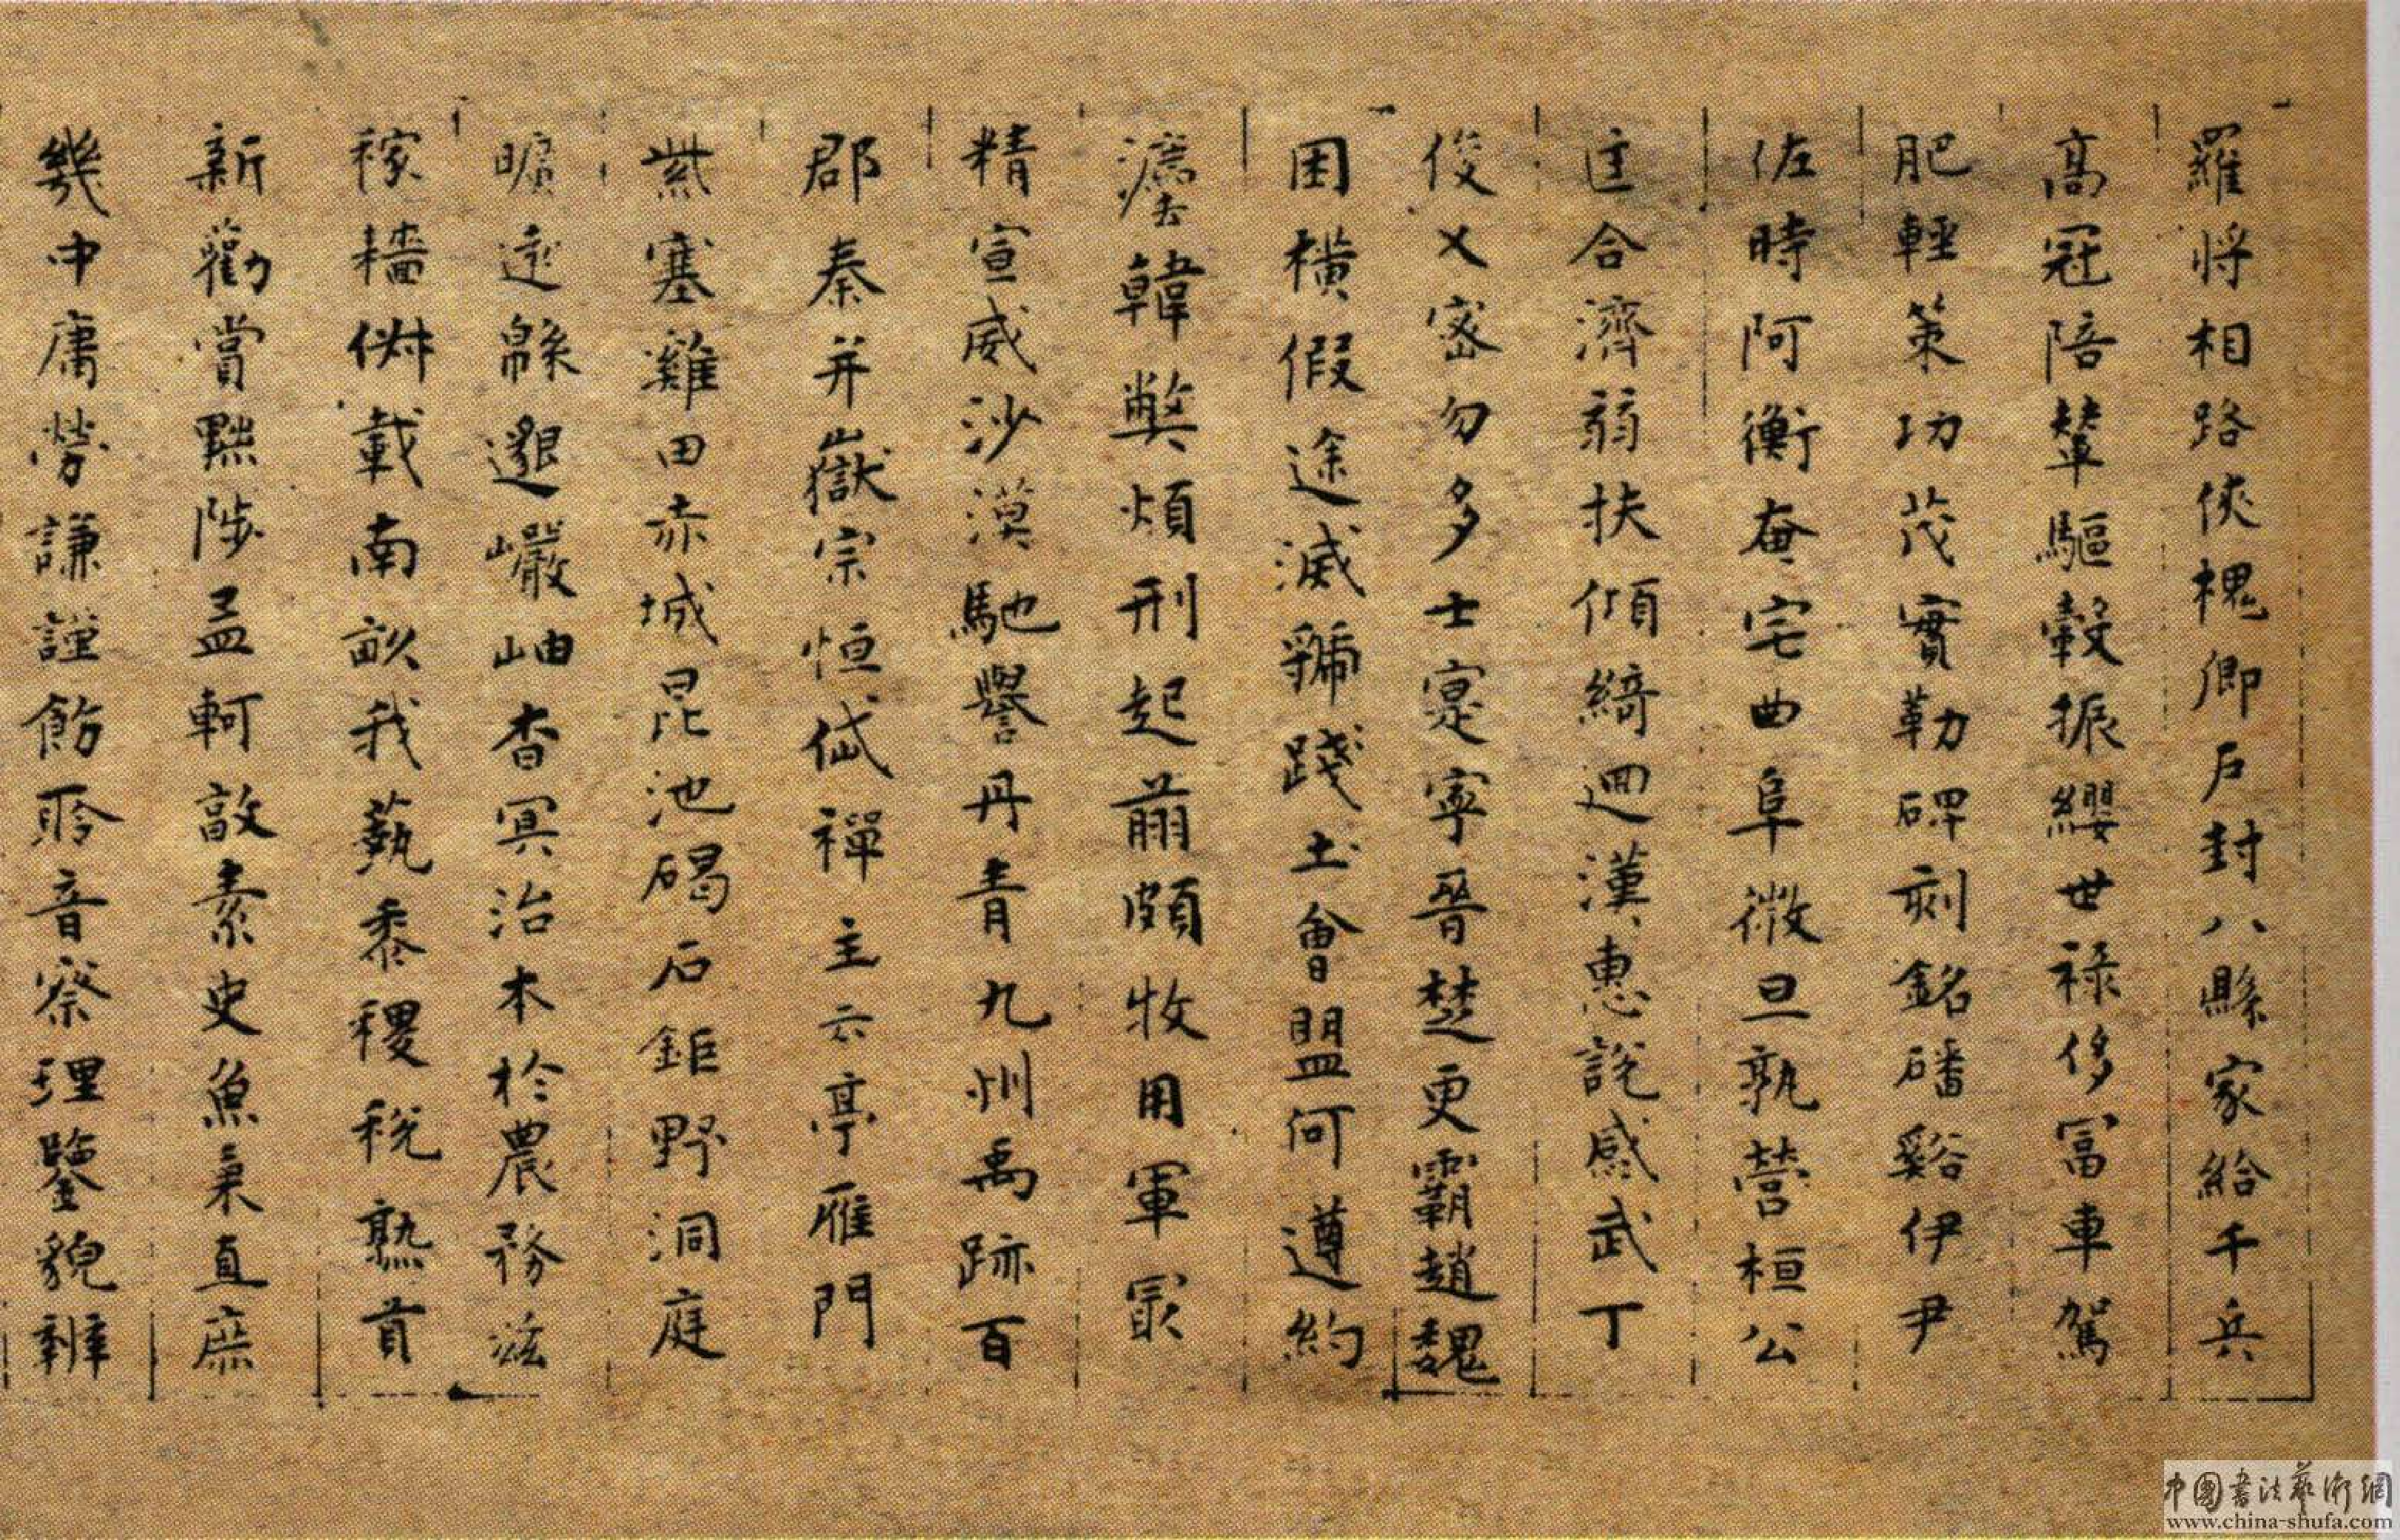 羅將相路俠槐卿戶封八縣家給千兵
高冠陪輦驅轂振纓世祿侈冨車駕
肥輕策功茂實勒碑刻銘磻谿伊尹
佐時阿衡奄宅曲阜微旦孰營桓公
匡合濟弱扶傾綺迴漢惠說感武丁
俊乂密勿多士寔寧晉楚更霸趙魏
困橫假途滅虢踐土會盟何遵約
法韓獘煩刑起翦頗牧用軍冣
精宣威沙漠馳譽丹青九州禹跡百
郡秦并嶽宗恒岱禪主云亭雁門
紫塞雞田赤城昆池碣石鉅野洞庭
曠遠綿邈巖岫杳冥治本於農務茲
稼穡俶載南畝我藝黍稷稅熟貢
新勸賞黜陟孟軻敦素史魚秉直庶
幾中庸勞謙謹飭聆音察理鑒貌辨
中國書法藝術網
www.china-shufa.com